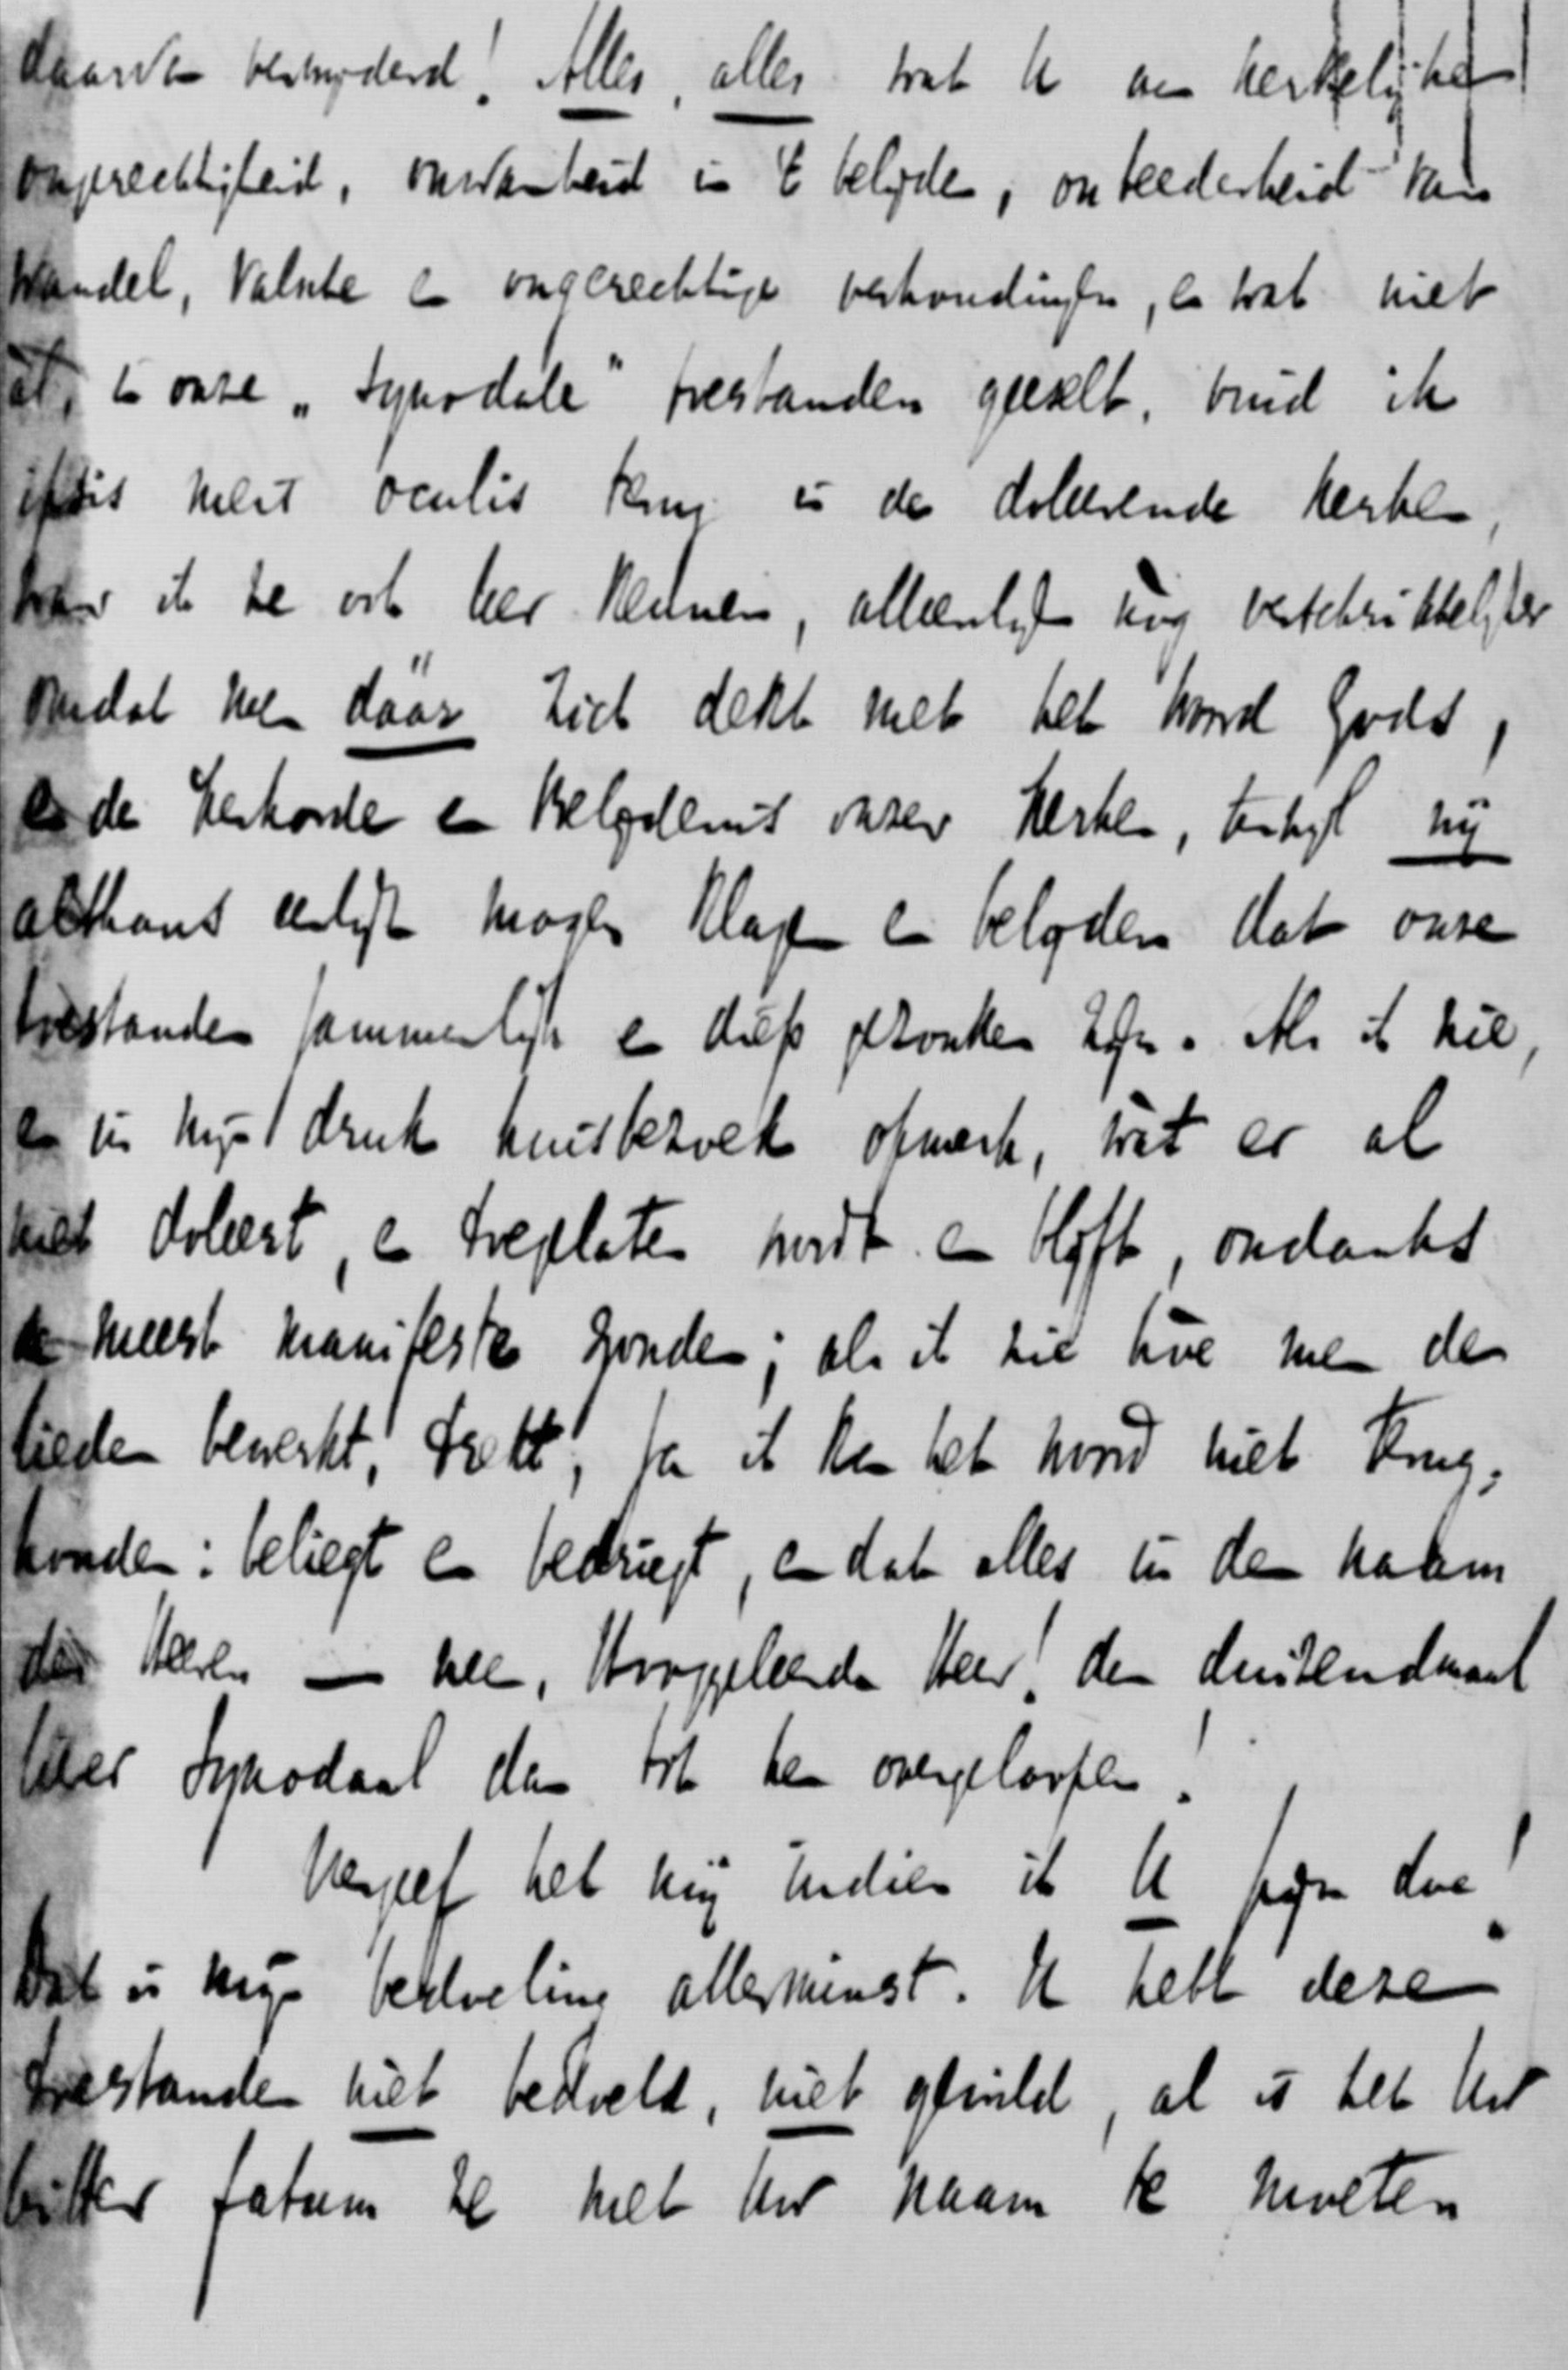 daarvan verwyderd! Alles, alles wat U aan kerkelyke
ongerechtigheid, onwaarheid in 't belyden, onteederheid van
wandel, valsche en ongerechtige verhoudingen, en wat niet
al, in onze „synodale" toestanden geeselt, vind ik
ipsis meis oculis terug in de doleerende kerken,
waar ik ze ook leer kennen, alleenlyk nog verschrikkelyker
omdat men dáár zich dekt met het woord Gods,
en de kerkorde en belydenis onzer kerken, terwyl wy
althans eerlyk mogen klagen en belyden dat onze
toestanden jammerlyk en diep gezonken zyn. Als ik zie,
en in myn druk huisbezoek opmerk, wat er al
niet doleert, en toegelaten wordt en blyft, ondanks
de meest manifeste zonden; als ik zie hoe men de
lieden bewerkt, , ja ik kan het woord niet terug-
houden: beliegt en bedriegt, en dat alles in den naam
des Heeren — nee, Hooggeleerde Heer! dan duizendmaal
liever synodaal dan tot hen overgeloopen!
Vergeef het my indien ik U pyn doe!
Dat is myn bedoeling allerminst. U hebt deze
toestanden niet bedoeld, niet gewild, al is het Uw
bitter fatum ze met Uw naam te moeten